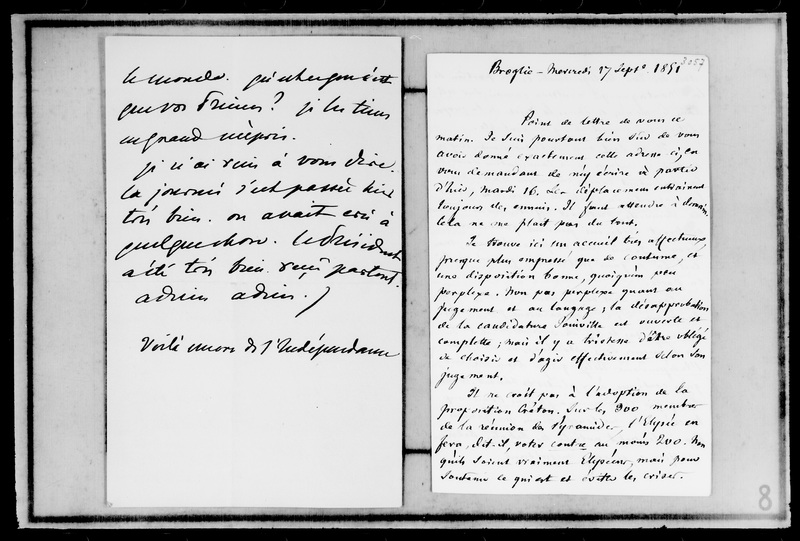 le monde.
que vos Princes? je les tiens
en grand mépris.
je n'ai rien à vous dire.
La journée s'est passée hier
très bien. on avait crû à
quelque chose. le Président
a été très bien reçu partout.
adieu adieu.
Voilà encore de l'Indépendance
Broglie - Mercredi 17 Septe. 1851
3057
Point de lettre de vous ce
matin. Je suis pourtant bien sûr de vous
avoir donné exactement cette adresse ci, en
vous demandant de m'y écrire à partir
d'hier, Mardi 16. Les déplacemens entrainent
toujours des ennuis. Il faut attendre à demain.
Cela ne me plait pas du tout.
Je trouve ici un accueil très affectueux,
presque plus empressé que de coutume, et
une disposition bonne, quoiqu'un peu
perplexe. Non pas perplexe quant au
jugement et au langage ; la désapprobation
de la candidature Joinville est ouverte et
complette ; mais il y a tristesse d'être obligé
de choisir et d'agir effectivement selon son
jugement.
Il ne croit pas à l'adoption de la
proposition Créton. Sur les 300 membres
de la réunion des Pyramides, l'Elysée en
fera, dit-il, voter contre au moins 200. Non
qu'ils soient vraiment Elyséens, mais pour
soutenir ce qui est et éviter les crises.
8